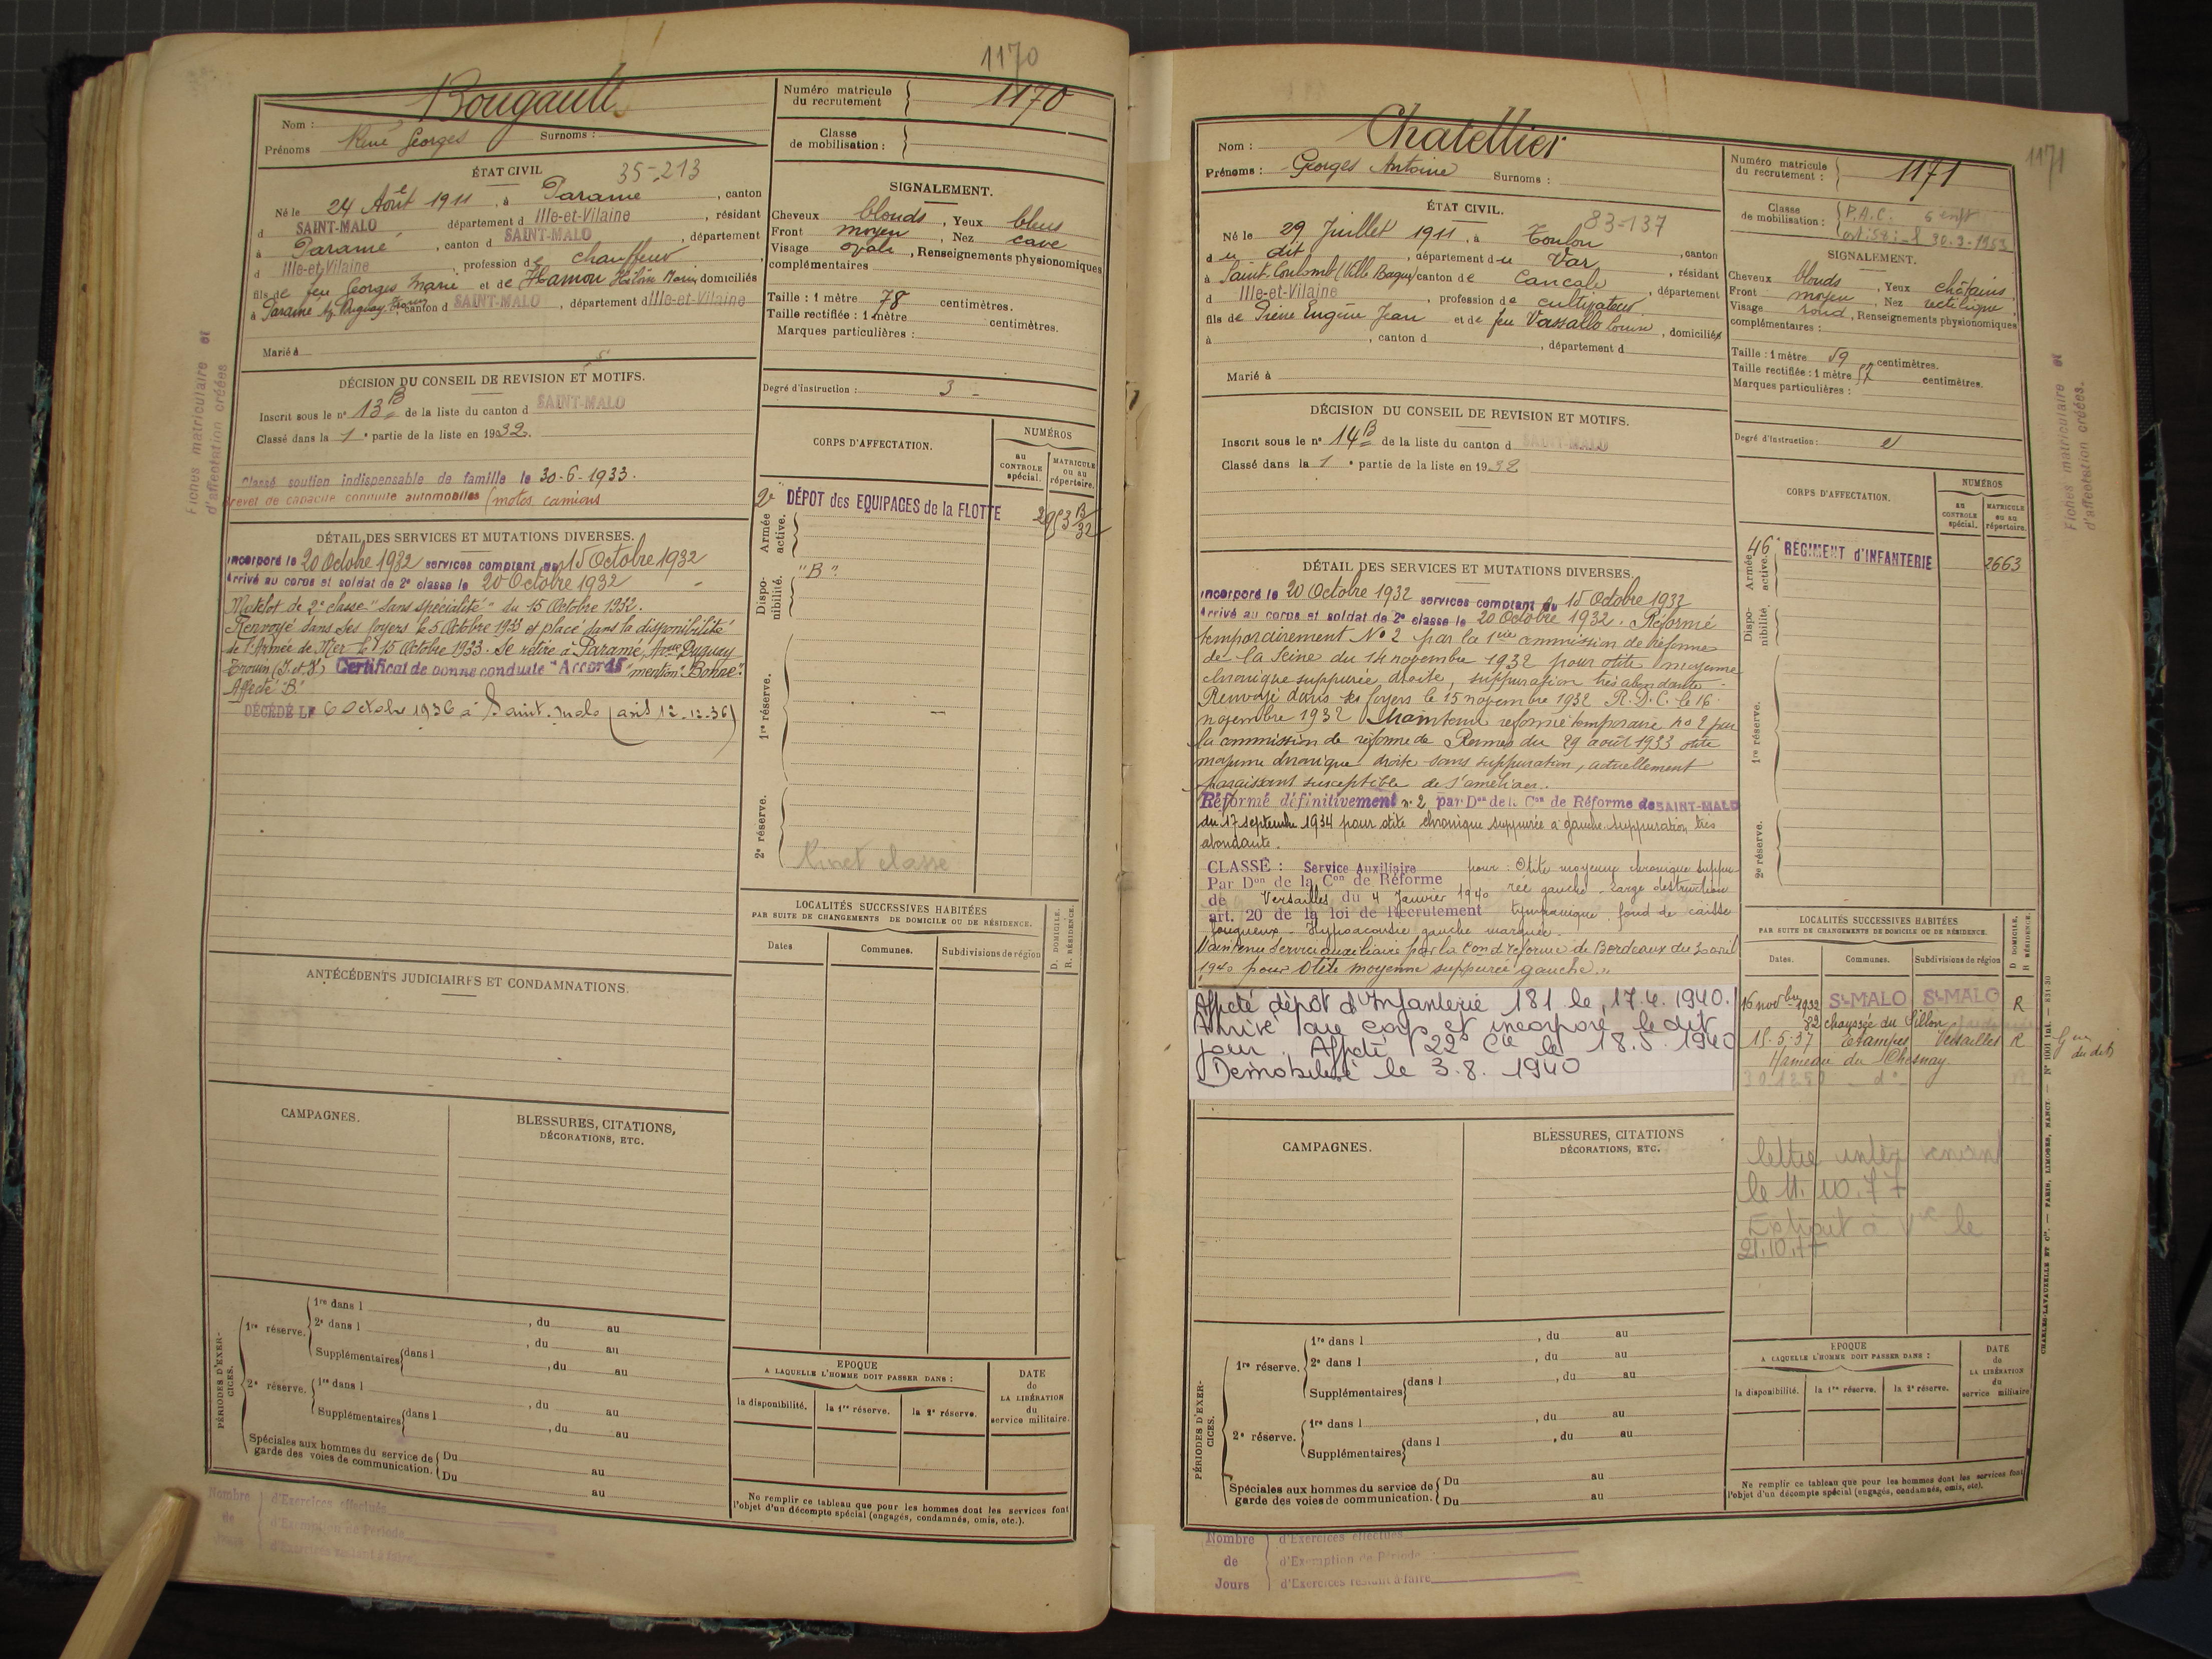 1170
Bougault
Nom :
Prénoms René Georges Surnoms :
Numéro matricule du recrutement 1170
Classe de mobilisation :
ÉTAT CIVIL 35-213
Né le 24 Août 1911, à Paramé, canton
d SAINT-MALO département d Ille-et-Vilaine, résidant
à Paramé, canton d SAINT-MALO, département
d Ille-et-Vilaine, profession de chauffeur,
fils de feu Georges Marie et de Hamon Hélène Marie domiciliés
à Paramé Duguay Trouin, canton d SAINT-MALO, département d Ille-et-Vilaine
Marié à
SIGNALEMENT.
Cheveux blonds, Yeux bleus
Front moyen, Nez cave
Visage ovale, Renseignements physionomiques
complémentaires
Taille : 1 mètre 78 centimètres.
Taille rectifiée : 1 mètre centimètres.
Marques particulières :
Degré d'instruction : 3
DÉCISION DU CONSEIL DE REVISION ET MOTIFS.
Inscrit sous le n° 13 B de la liste du canton d SAINT-MALO
Classé dans la 1e partie de la liste en 1932.
Classé soutien indispensable de famille le 30-6-1933.
Brevet de capacité conduite automobiles (motos camions
Fiches matriculaire et
d'affectation créées
CORPS D'AFFECTATION.
NUMÉROS
au CONTROLE spécial.
MATRICULE ou au répertoire.
2e DÉPOT des EQUIPAGES de la FLOTTE 2953 B/32
Armée active.
Disponibilité. "B".
1re réserve.
2e réserve.
Livret classé
DÉTAIL DES SERVICES ET MUTATIONS DIVERSES.
Incorporé le 20 Octobre 1932 services comptant du 15 Octobre 1932
Arrivé au corps et soldat de 2e classe le 20 Octobre 1932
Matelot de 2e classe "sans spécialité" du 15 Octobre 1932.
Renvoyé dans ses foyers le 5 Octobre 1933 et placé dans la disponibilité
de l'Armée de Mer le 15 Octobre 1933. Se retire à Paramé, Avue Duguay
Trouin (I. et V.) Certificat de bonne conduite "Accordé" mention "Bonne".
Affecté "B"
DÉCÉDÉ LE 6 Octobre 1936 à Saint-Malo (avis 12-12-36)
LOCALITÉS SUCCESSIVES HABITÉES
PAR SUITE DE CHANGEMENTS DE DOMICILE OU DE RÉSIDENCE.
Dates Communes. Subdivisions de région
D. DOMICILE.
R. RÉSIDENCE.
ANTÉCÉDENTS JUDICIAIRES ET CONDAMNATIONS.
CAMPAGNES.
BLESSURES, CITATIONS,
DÉCORATIONS, ETC.
PÉRIODES D'EXERCICES.
1re réserve.
1re dans l , du au
2e dans l , du au
Supplémentaires dans l , du au
2e réserve.
1re dans l , du au
Supplémentaires dans l , du au
Spéciales aux hommes du service de
garde des voies de communication.
Du au
Du au
EPOQUE
A LAQUELLE L'HOMME DOIT PASSER DANS :
la disponibilité. la 1re réserve. la 2e réserve.
DATE de LA LIBÉRATION du service militaire.
Ne remplir ce tableau que pour les hommes dont les services font
l'objet d'un décompte spécial (engagés, condamnés, omis, etc.).
Nombre de Jours
d'Exercices effectués
d'Exemption de Période
d'Exercices restant à faire
1171
Chatellier
Nom :
Prénoms : Georges Antoine Surnoms :
Numéro matricule du recrutement : 1171
Classe de mobilisation : P.A.C. 6 enft
art. 58 : 30-9-1953
ÉTAT CIVIL. 83-137
Né le 29 Juillet 1911, à Toulon, canton
du dit, département du Var, résidant
à Saint-Coulomb (Ville Bague) canton de Cancale, département
d Ille-et-Vilaine, profession de cultivateur
fils de Pierre Eugène Jean et de feu Vassallo Louise, domiciliés
à , canton d , département d
Marié à
SIGNALEMENT.
Cheveux blonds, Yeux châtains
Front moyen, Nez rectiligne
Visage rond, Renseignements physionomiques
complémentaires :
Taille : 1 mètre 59 centimètres.
Taille rectifiée : 1 mètre 57 centimètres.
Marques particulières :
Degré d'instruction :
DÉCISION DU CONSEIL DE REVISION ET MOTIFS.
Inscrit sous le n° 14 B de la liste du canton d SAINT-MALO
Classé dans la 1e partie de la liste en 1932
Fiches matriculaire et
d'affectation créées.
CORPS D'AFFECTATION.
NUMÉROS
au CONTROLE spécial.
MATRICULE ou au répertoire.
46e RÉGIMENT d'INFANTERIE 2663
Armée active.
Disponibilité.
1re réserve.
2e réserve.
DÉTAIL DES SERVICES ET MUTATIONS DIVERSES.
Incorporé le 20 Octobre 1932 services comptant du 15 Octobre 1932
Arrivé au corps et soldat de 2e classe le 20 Octobre 1932. Réformé
temporairement N° 2 par la 1ère commission de Réforme
de la Seine du 14 novembre 1932 pour otite moyenne
chronique suppurée droite, suppuration très abondante.
Renvoyé dans ses foyers le 15 novembre 1932 R.D.C. le 16
novembre 1932 Maintenu réformé temporaire no 2 par
la commission de réforme de Rennes du 29 août 1933 otite
moyenne chronique droite sans suppuration, actuellement
paraissant susceptible de s'améliorer.
Réformé définitivement n° 2 par Don de la Con de Réforme de SAINT-MALO
du 17 septembre 1934 pour otite chronique suppurée à gauche. Suppuration très
abondante.
CLASSÉ : Service Auxiliaire pour : Otite moyenne chronique suppu-
Par Don de la Con de Réforme rée gauche - large destruction
de Versailles du 4 Janvier 1940 tympanique, fond de caisse
art. 20 de la loi de Recrutement
fongueux - Hypoacousie gauche marquée.
Maintenu service auxiliaire par la Con de réforme de Bordeaux du 30 avril
1940 pour otite moyenne suppurée gauche.
Affecté dépôt d'Infanterie 181 le 17.4.1940.
Arrivé au corps et incorporé le dit
jour. Affecté 22e Cie le 18.5.1940
Démobilisé le 3.8.1940
LOCALITÉS SUCCESSIVES HABITÉES
PAR SUITE DE CHANGEMENTS DE DOMICILE OU DE RÉSIDENCE.
Dates. Communes. Subdivisions de région
D DOMICILE.
R RÉSIDENCE.
16 novbre 1932 St-MALO St-MALO R
32 chaussée du Sillon
15-5-37 Etampes Versailles R
Hameau du Chesnay
do
lettre
le 11.10.77
Extrait à le
21.10.77
CAMPAGNES.
BLESSURES, CITATIONS
DÉCORATIONS, ETC.
PÉRIODES D'EXERCICES.
1re réserve.
1re dans l , du au
2e dans l , du au
Supplémentaires dans l , du au
2e réserve.
1re dans l , du au
Supplémentaires dans l , du au
Spéciales aux hommes du service de
garde des voies de communication.
Du au
Du au
EPOQUE
A LAQUELLE L'HOMME DOIT PASSER DANS :
la disponibilité. la 1re réserve. la 2e réserve.
DATE de LA LIBÉRATION du service militaire
Ne remplir ce tableau que pour les hommes dont les services font
l'objet d'un décompte spécial (engagés, condamnés, omis, etc).
CHARLES-LAVAUZELLE ET Cie. — PARIS, LIMOGES, NANCY. — N° 1001 int. — 831-30
Nombre de Jours
d'Exercices effectués
d'Exemption de Période
d'Exercices restant à faire